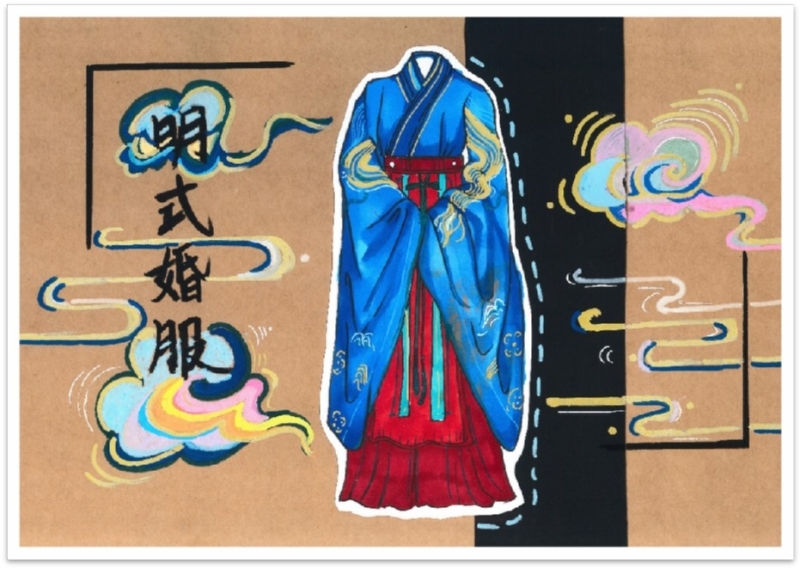 明式婚服